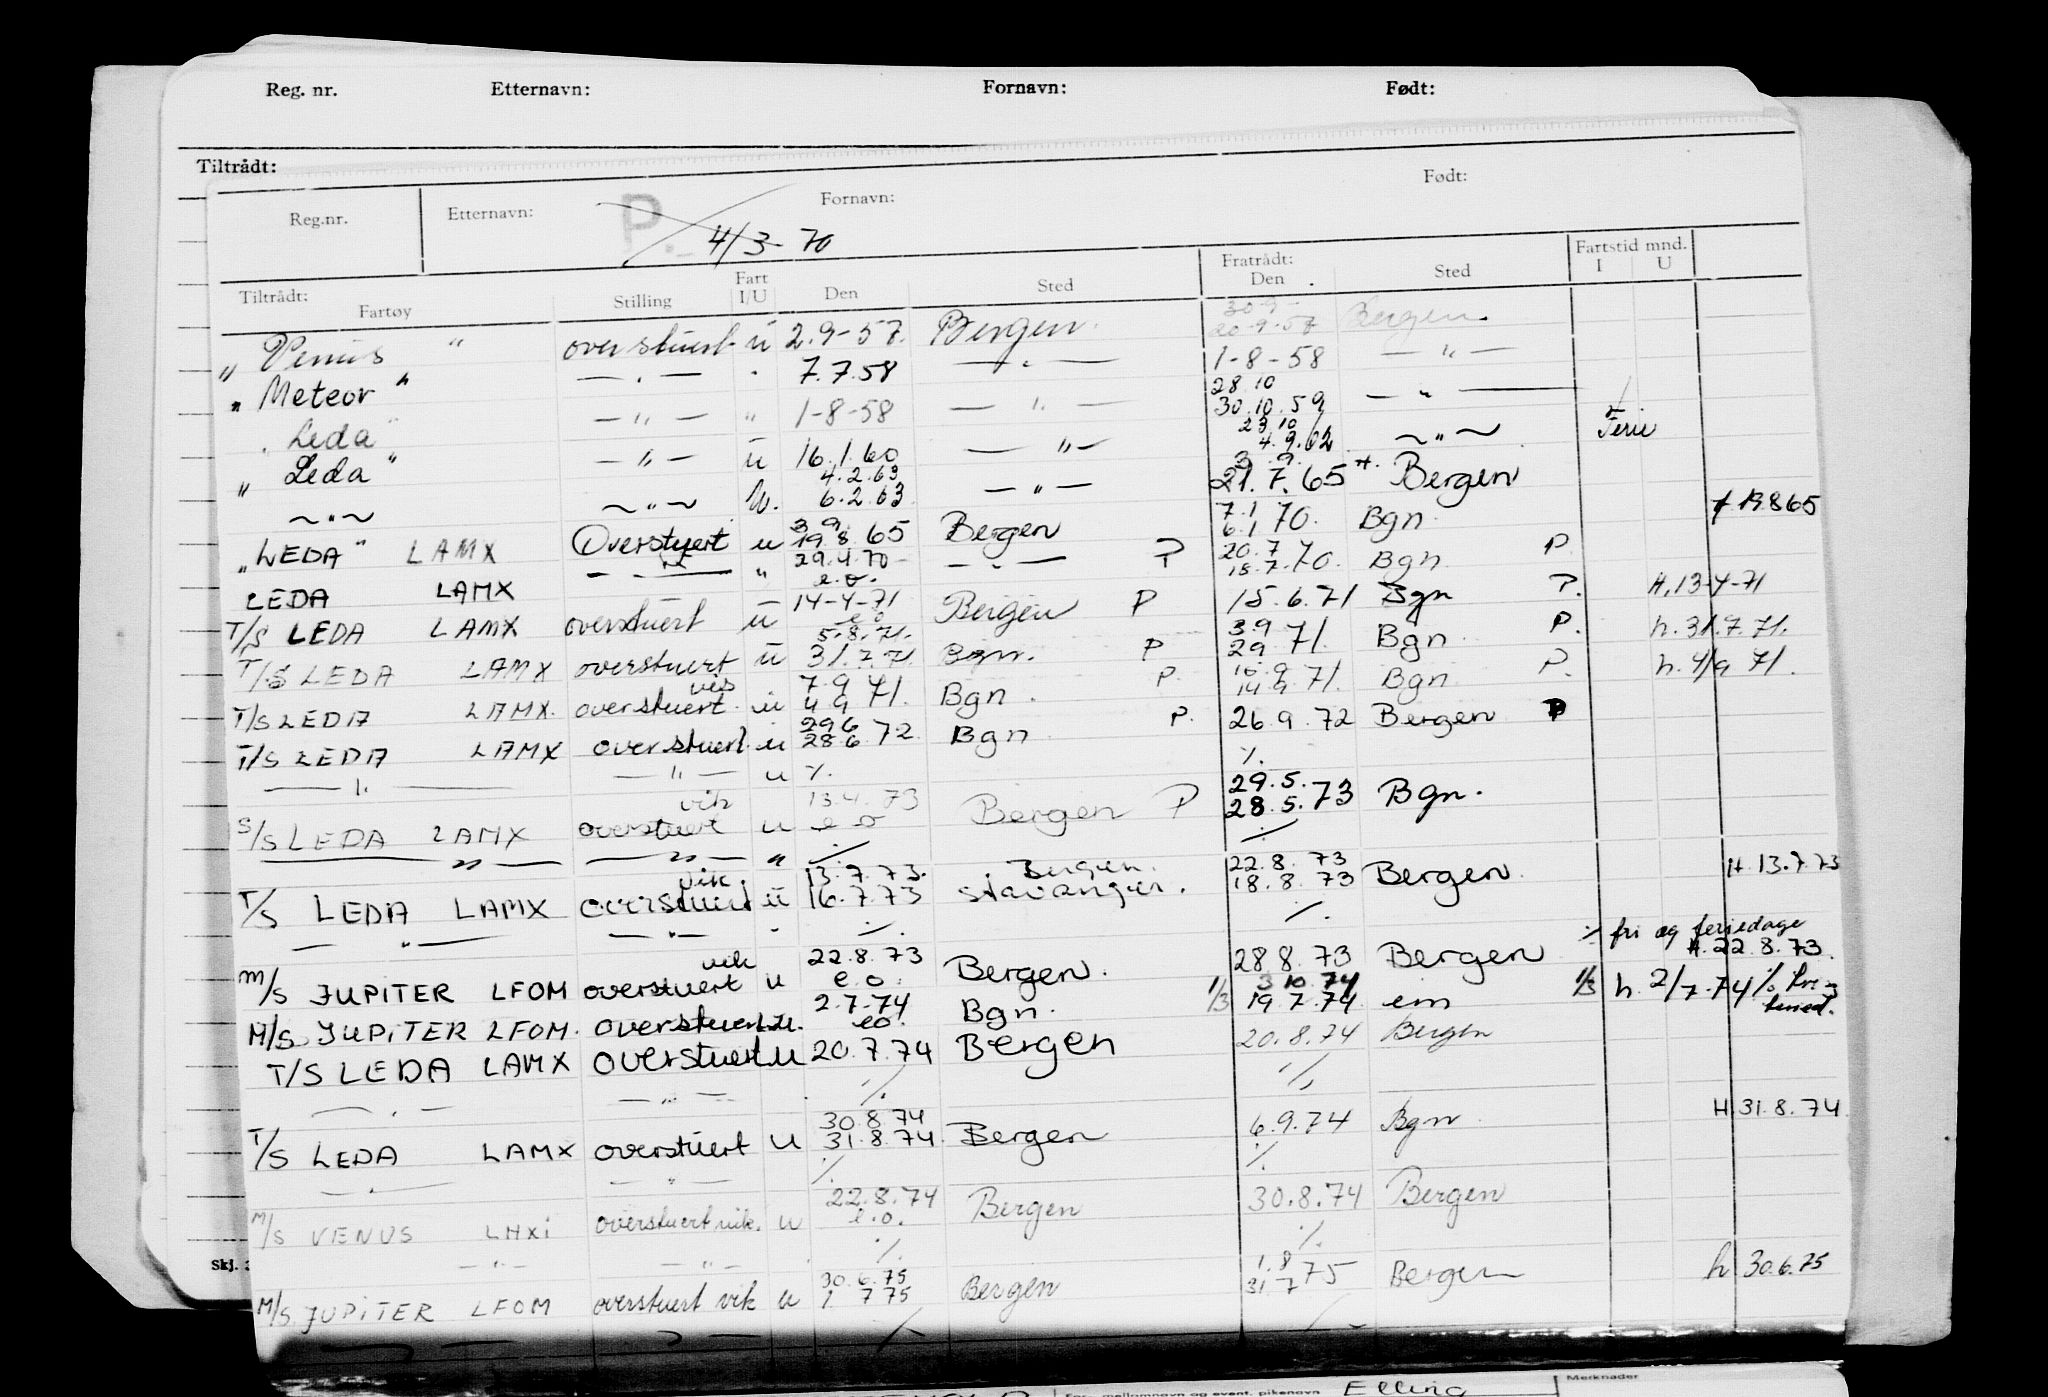 Reg. nr. Etternavn: Fornavn: Født:
Tiltrådt:
Reg.nr. Etternavn: P. Fornavn: Født:
4/3-70
Tiltrådt: Fratrådt: Fartstid mnd.
Fartøy Stilling Fart I/U Den Sted Den Sted I U
30-9-
„ Venus “ overstuert u 2.9-57. Bergen. 20-9-57 Bergen.
„ Meteor “ — „ — " 7.7.58 — „ — 1-8-58 — „ —
28.10
„ Leda “ — „ — " 1-8-58 — „ — 30.10.59 — „ —
23.10
„ Leda “ — „ — u 16.1.60 — „ — 4.9.62 ~ „ ~ Ferie
4.2.63 3.9.
~ „ ~ ~ „ ~ u. 6.2.63 — „ — 21.7.65 H. Bergen
3.9. 7.1
„LEDA“ LAMX Overstuert u 19.8.65 Bergen 6.1 70. Bgn. 19865
29.4.70 20.7
LEDA LAMX — „ — " e.o. — „ — P 15.7.70. Bgn. P
14-4-71
T/S LEDA LAMX overstuert u e.o Bergen P 15.6.71 Bgn P. H. 13-4-71
5.8.71. 3.9
T/S LEDA LAMX overstuert u 31.7.71 Bgn. P 29 71. Bgn. P. h. 31.7.71.
7.9
T/S LEDA LAMX. overstuert u 4.9 71. Bgn. P. 14.9.71. Bgn P. h. 4/9 71.
29.6
T/S LEDA LAMX overstuert u 28.6 72. Bgn P. 26.9.72 Bergen P
— „ — — „ — u ./. ./.
vik 13.4.73 29.5.
S/S LEDA LAMX overstuert u e o Bergen P 28.5.73 Bgn.
— „ — — „ — " ./. ./.
vik. 13.7.73. Bergen. 22.8.73
T/S LEDA LAMX overstuert u 16.7.73 Stavanger. 18.8.73 Bergen. H. 13.7.73
— „ — — „ — " ./. ./.
./. fri og feriedage
vik 22.8.73 H. 22.8.73.
M/S JUPITER LFOM overstuert u e.o. Bergen. 28.8.73 Bergen
2.7.74 3 10.74
M/S JUPITER LFOM. overstuert u. eo. Bgn. 1/3 19.7.74. em 1/3 h. 2/7-74
T/S LEDA LAMX overstuert u 20.7.74 Bergen 20.8.74 Bergen
— „ — — „ — ./. ./.
30.8.74
T/S LEDA LAMX overstuert u 31.8.74. Bergen 6.9.74 Bgn. H 31.8.74
— „ — — „ — ./. ./.
22.8.74
M/S VENUS LHXI overstuert vik. u e.o. Bergen 30.8.74 Bergen
— „ — — „ — ./. ./.
30.6.75 1.8
M/S JUPITER LFOM overstuert vik u 1 7 75 Bergen 31 7 75 Bergen h 30.6.75
Skj.
Elling Merknader